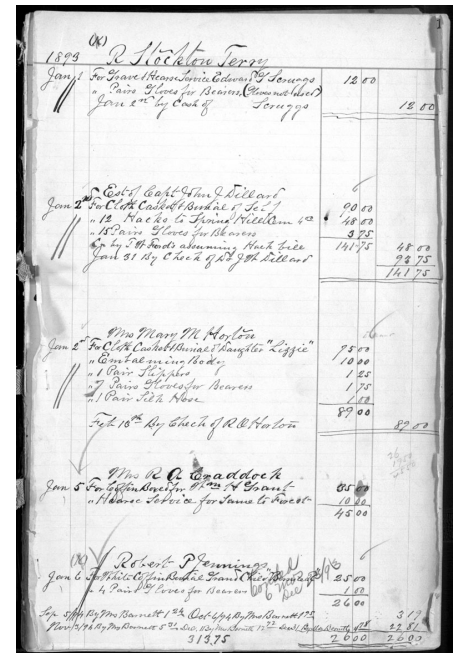 1
(X)
1893 R Stockton Terry
Jan 1 For Grave & Hearse Service Edward G Scruggs 12 00
" Pairs Gloves for Bearers, (Gloves not used)
Jan 2nd by Cash of Scruggs 12 00
Est of Capt John J Dillard
Jan 2nd For Cloth Casket & Burial of Self 90 00
" 12 Hacks to Spring Hill Cem 4 00 48 00
" 15 Pairs Gloves for Bearers 3 75
Cr by J W Fords assuming Hack bill 141 75 48 00
Jan 31 By Check of Dr J W Dillard 93 75
141 75
Mrs Mary M Horton
Jan 2nd For Cloth Casket & Burial of Daughter "Lizzie" 75 00
" Embalming Body 10 00
" 1 Pair Slippers 1 25
" 7 Pairs Gloves for Bearers 1 75
" 1 Pair Silk Hose 1 00
89 00
Feb 18th By Check of R O Horton 89 00
Mrs R A Craddock
Jan 5 For Coffin Box for Wm H Grant 35 00
" Hearse Service for Same to Forest 10 00
45 00
Robert P Jennings
Jan 6 For White Coffin Burial Grand Child 25 00
" 4 Pairs Gloves for Bearers 1 00
26 00
Sep 5/94 By Mrs Barnett Oct 4/94 By Mrs Barnett 3 19
Nov 3/94 By Mrs Barnett 22 81
313,75 26 00 26 00